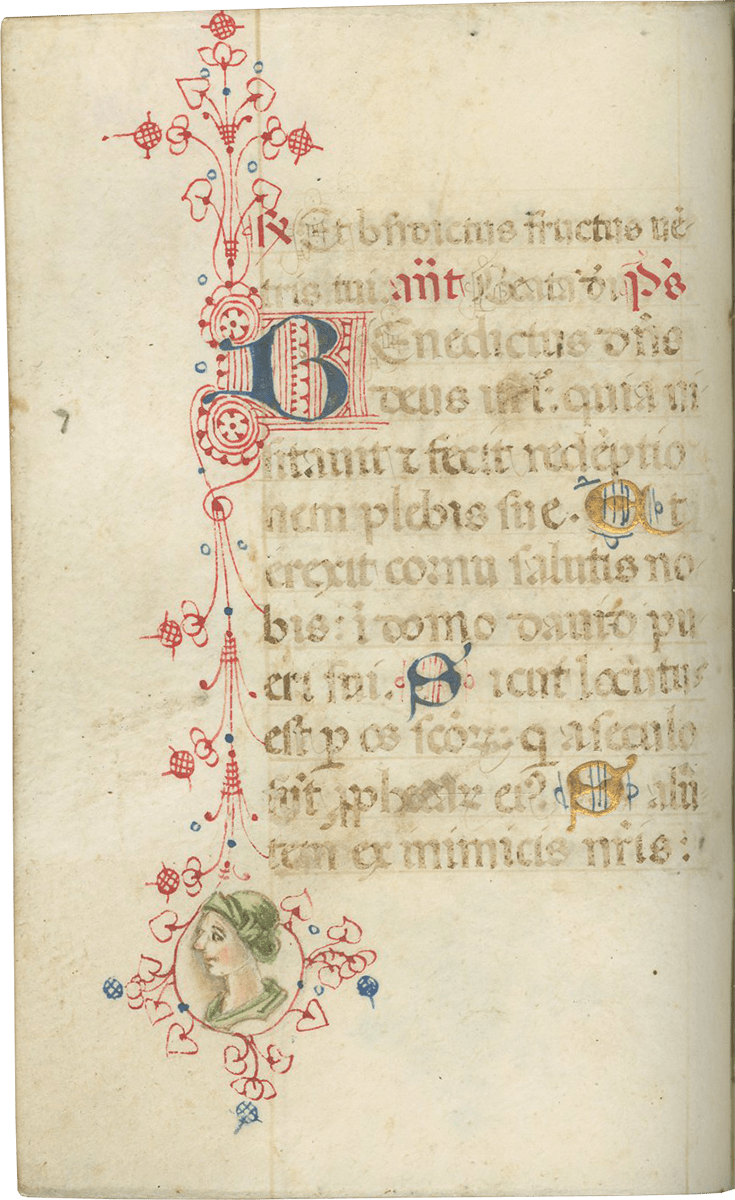 ℟ Et bn̄dictus fructus vē
tris tui: añt Beata d̄i P̄s
BEnedictus dn̄s
deus isr̄l: quia ui
sitauit ⁊ fecit redēptio
nem plebis sue. Et
erexit cornu salutis no
bis: ī domo dauid pu
eri sui. Sicut locutus
est ꝑ os scōꝝ: q̄ a seculo
sūt ꝓphetaꝝ eiꝰ. Salu
tem ex inimicis nr̄is: